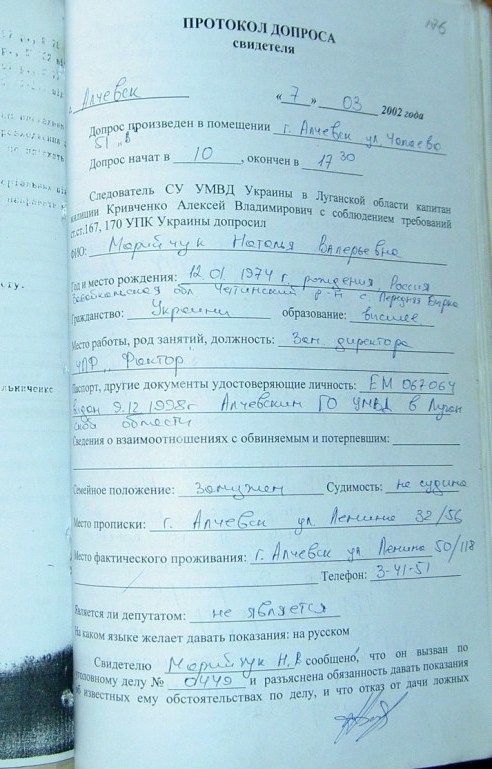 176
ПРОТОКОЛ ДОПРОСА
свидетеля
г. Алчевск « 7 » 03 2002 года
Допрос произведен в помещении г. Алчевск ул. Чапаева
51 „в"
Допрос начат в 10, окончен в 17 30
Следователь СУ УМВД Украины в Луганской области капитан
милиции Кривченко Алексей Владимирович с соблюдением требований
ст.ст.167, 170 УПК Украины допросил
ФИО: Марийчук Наталья Валерьевна
Год и место рождения: 12 01 1974 г. рождения, Россия
обл. Читинский р-н с. Передняя
Гражданство: Украины образование: высшее
Место работы, род занятий, должность: Зам. директора
ЧПФ „Фактор
Паспорт, другие документы удостоверяющие личность: ЕМ 067064
выдан 9.12.1998г Алчевским ГО УМВД в Луган
ской области
Сведения о взаимоотношениях с обвиняемым и потерпевшим:
Семейное положение: Замужем Судимость: не судима
Место прописки: г. Алчевск ул. Ленина 32/56
Место фактического проживания: г. Алчевск ул Ленина 50/118
Телефон: 3-41-51
Является ли депутатом: не является
На каком языке желает давать показания: на русском
Свидетелю Марийчук Н.В сообщено, что он вызван по
уголовному делу № 0449 и разъяснена обязанность давать показания
об известных ему обстоятельствах по делу, и что отказ от дачи ложных